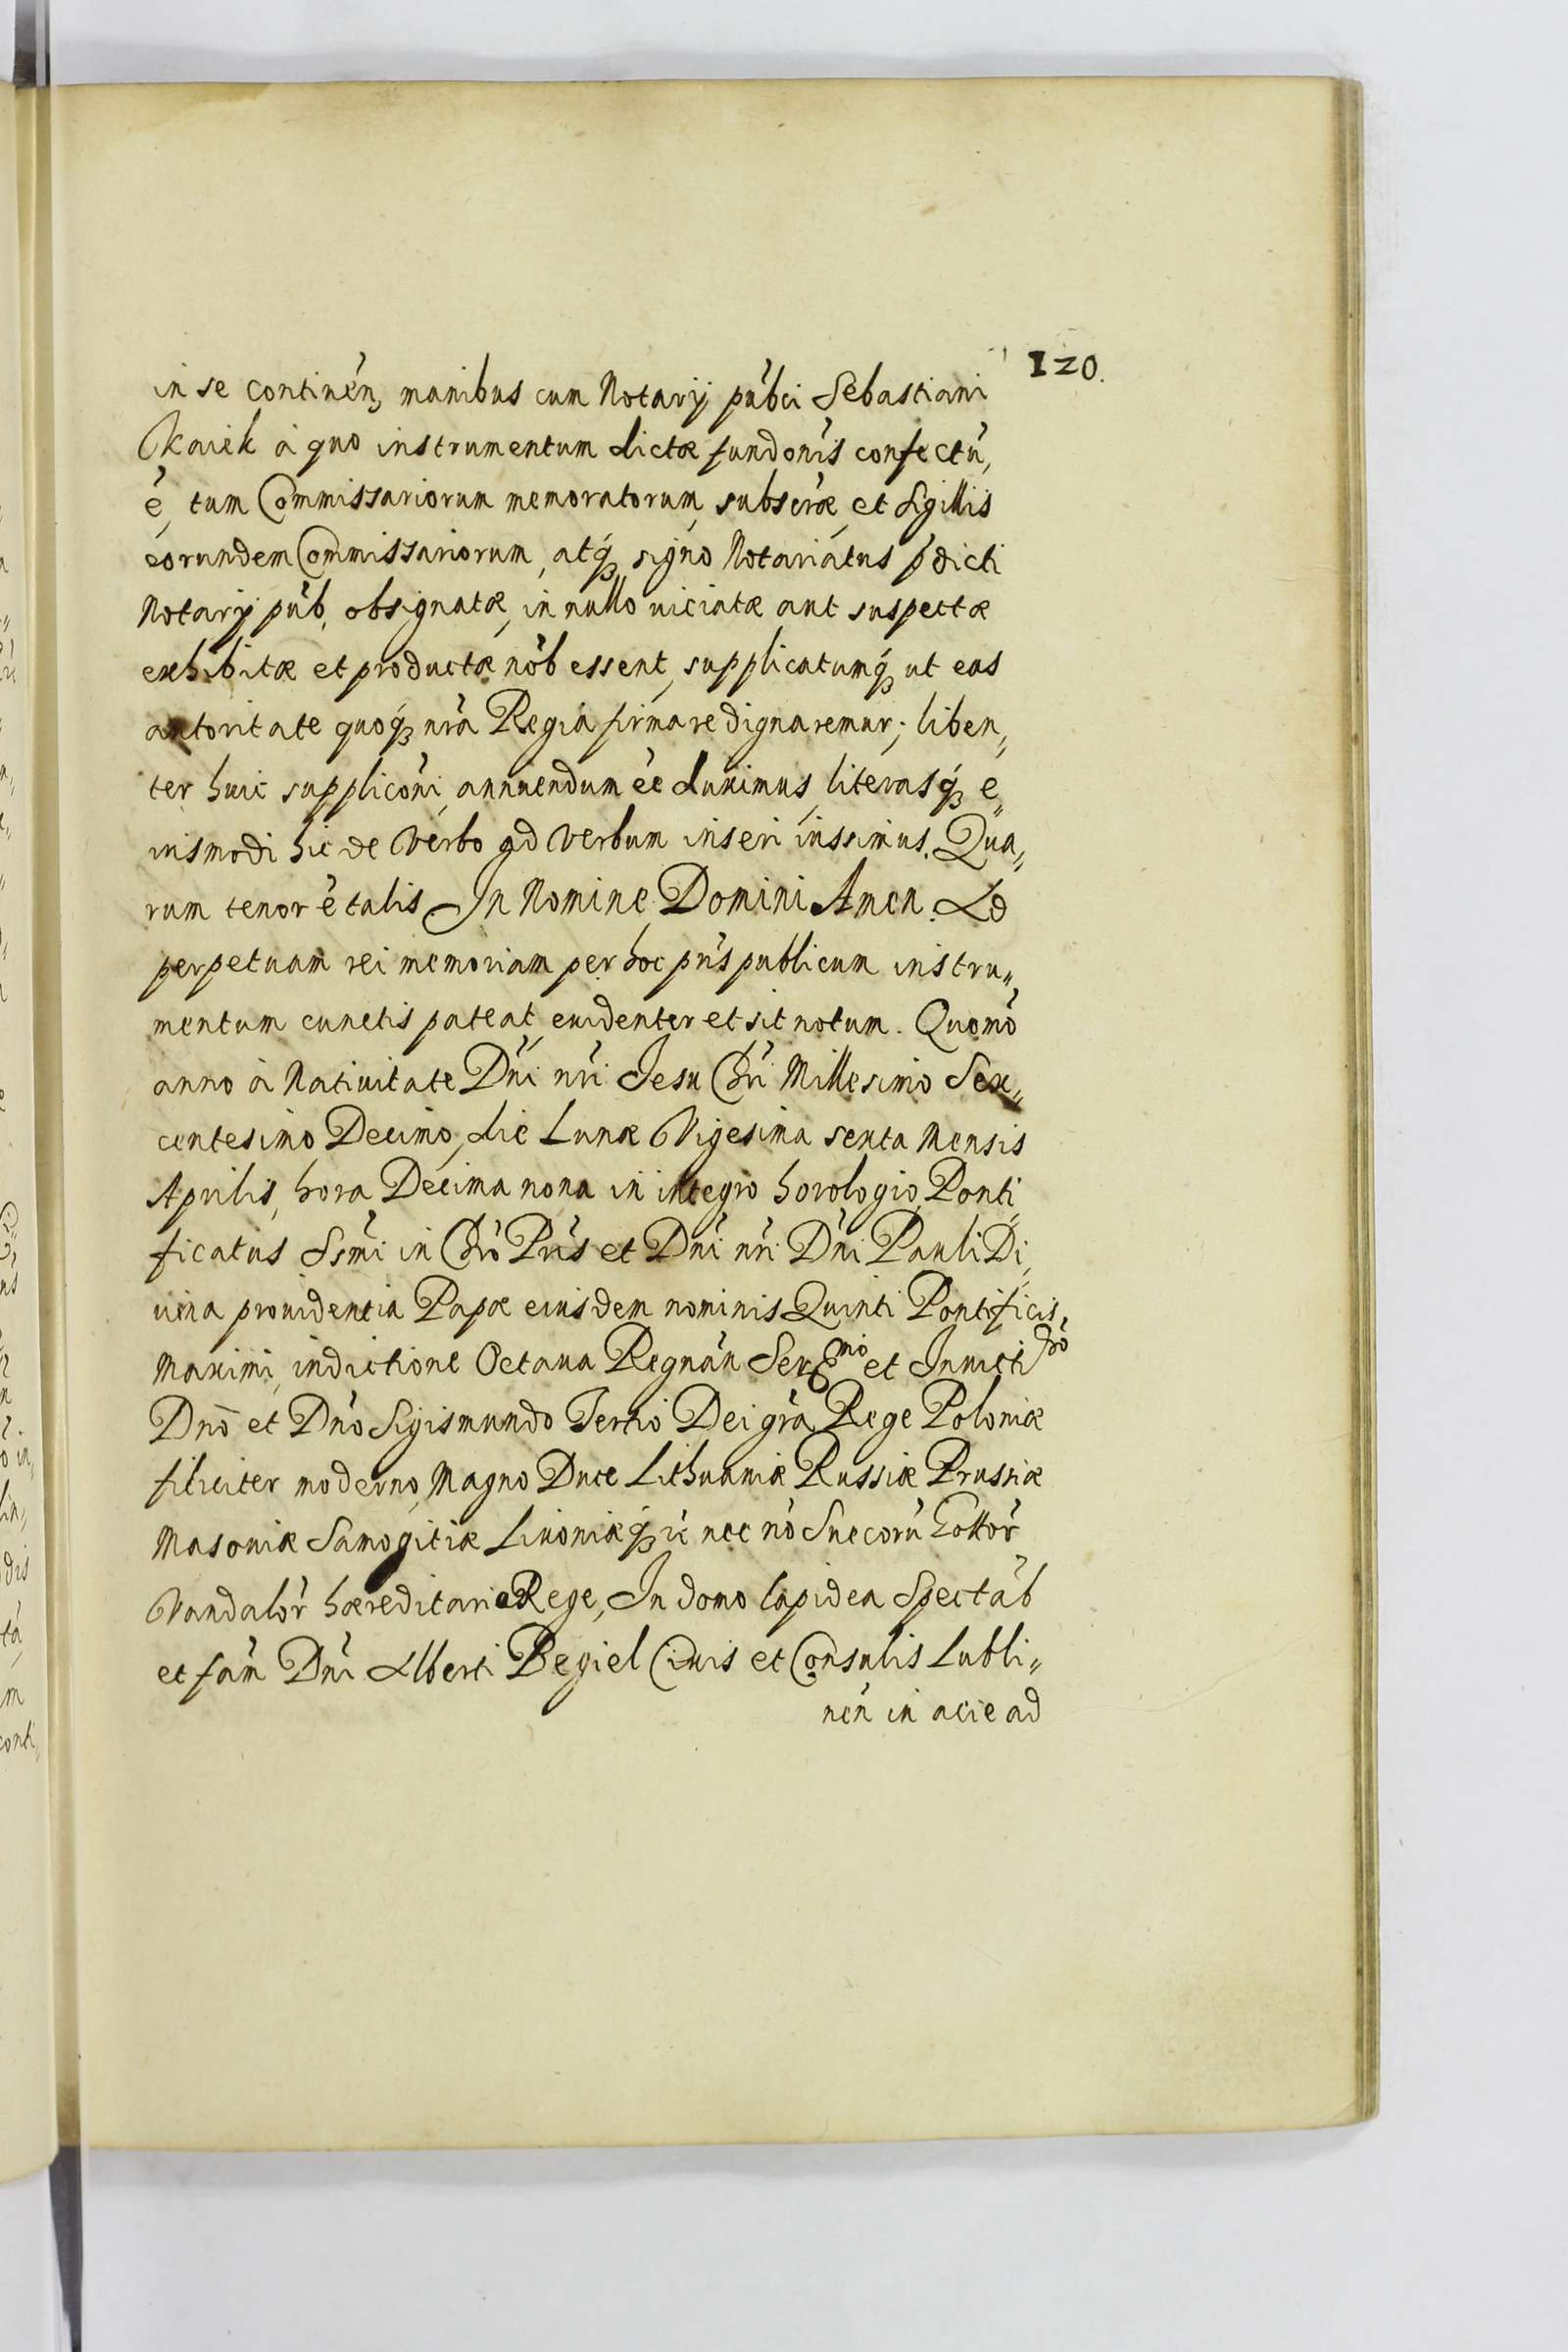 120.
in se continen̄, manibus cum Notarij pub̀ci Sebastiani
à quo instrumentum dictæ fundonìs confectù,
è, tum Commissariorum memoratorum, subscræ, et sigillis
eorundem Commissariorum, atq́ꝫ signo Notariatus p̀dicti
Notarij pub̀, obsignatæ, in nullo viciatæ aut suspectæ
exhibitæ et productæ nòb essent, supplicatumq́ꝫ ut eas
autoritate quoq́ꝫ nrà Regia firmare dignaremur; liben„
ter huic supplicòni, annuendum èe duximus, literasq́ꝫ e„
iusmodi hic de verbo ad verbum inseri iussimus. Qua„
rum tenor è talis In Nomine Domini Amen. Ad
perpetuam rei memoriam per hoc pns̀ publicum instru„
mentum cunctis pateat, euidenter et sit notum. Quomò
anno à Natiuitate Dnì nrì Jesu Chrì Millesimo Sex„
centesimo Decimo, die Lunæ Vigesima sexta Mensis
Aprilis, hora Decima nona in integro horologio, Ponti„
ficatus Ssmì in Chrò Prìs et Dnì nrì Dnì Pauli Di„
uina prouidentia Papæ eiusdem nominis Quinti Pontificis,
Maximi, indictione Octaua Regnàn Ser\u1d50\u1d52 et Inuicti
Dnō et Dnò Sigismundo Tertio Dei grà Rege Poloniæ
feliciter moderno, Magno Duce Lithuaniæ Russiæ Prussiæ
Masouiæ Samogitiæ Liuoniæq́ꝫ nec nò Suecorù Gottor̀
Vandalor̀ hæreditario Rege, In domo lapidea Spectàb
et fàm Dnì Alberti Regiel Ciuis et Consulis Lubli„
nen̄ in acie ad